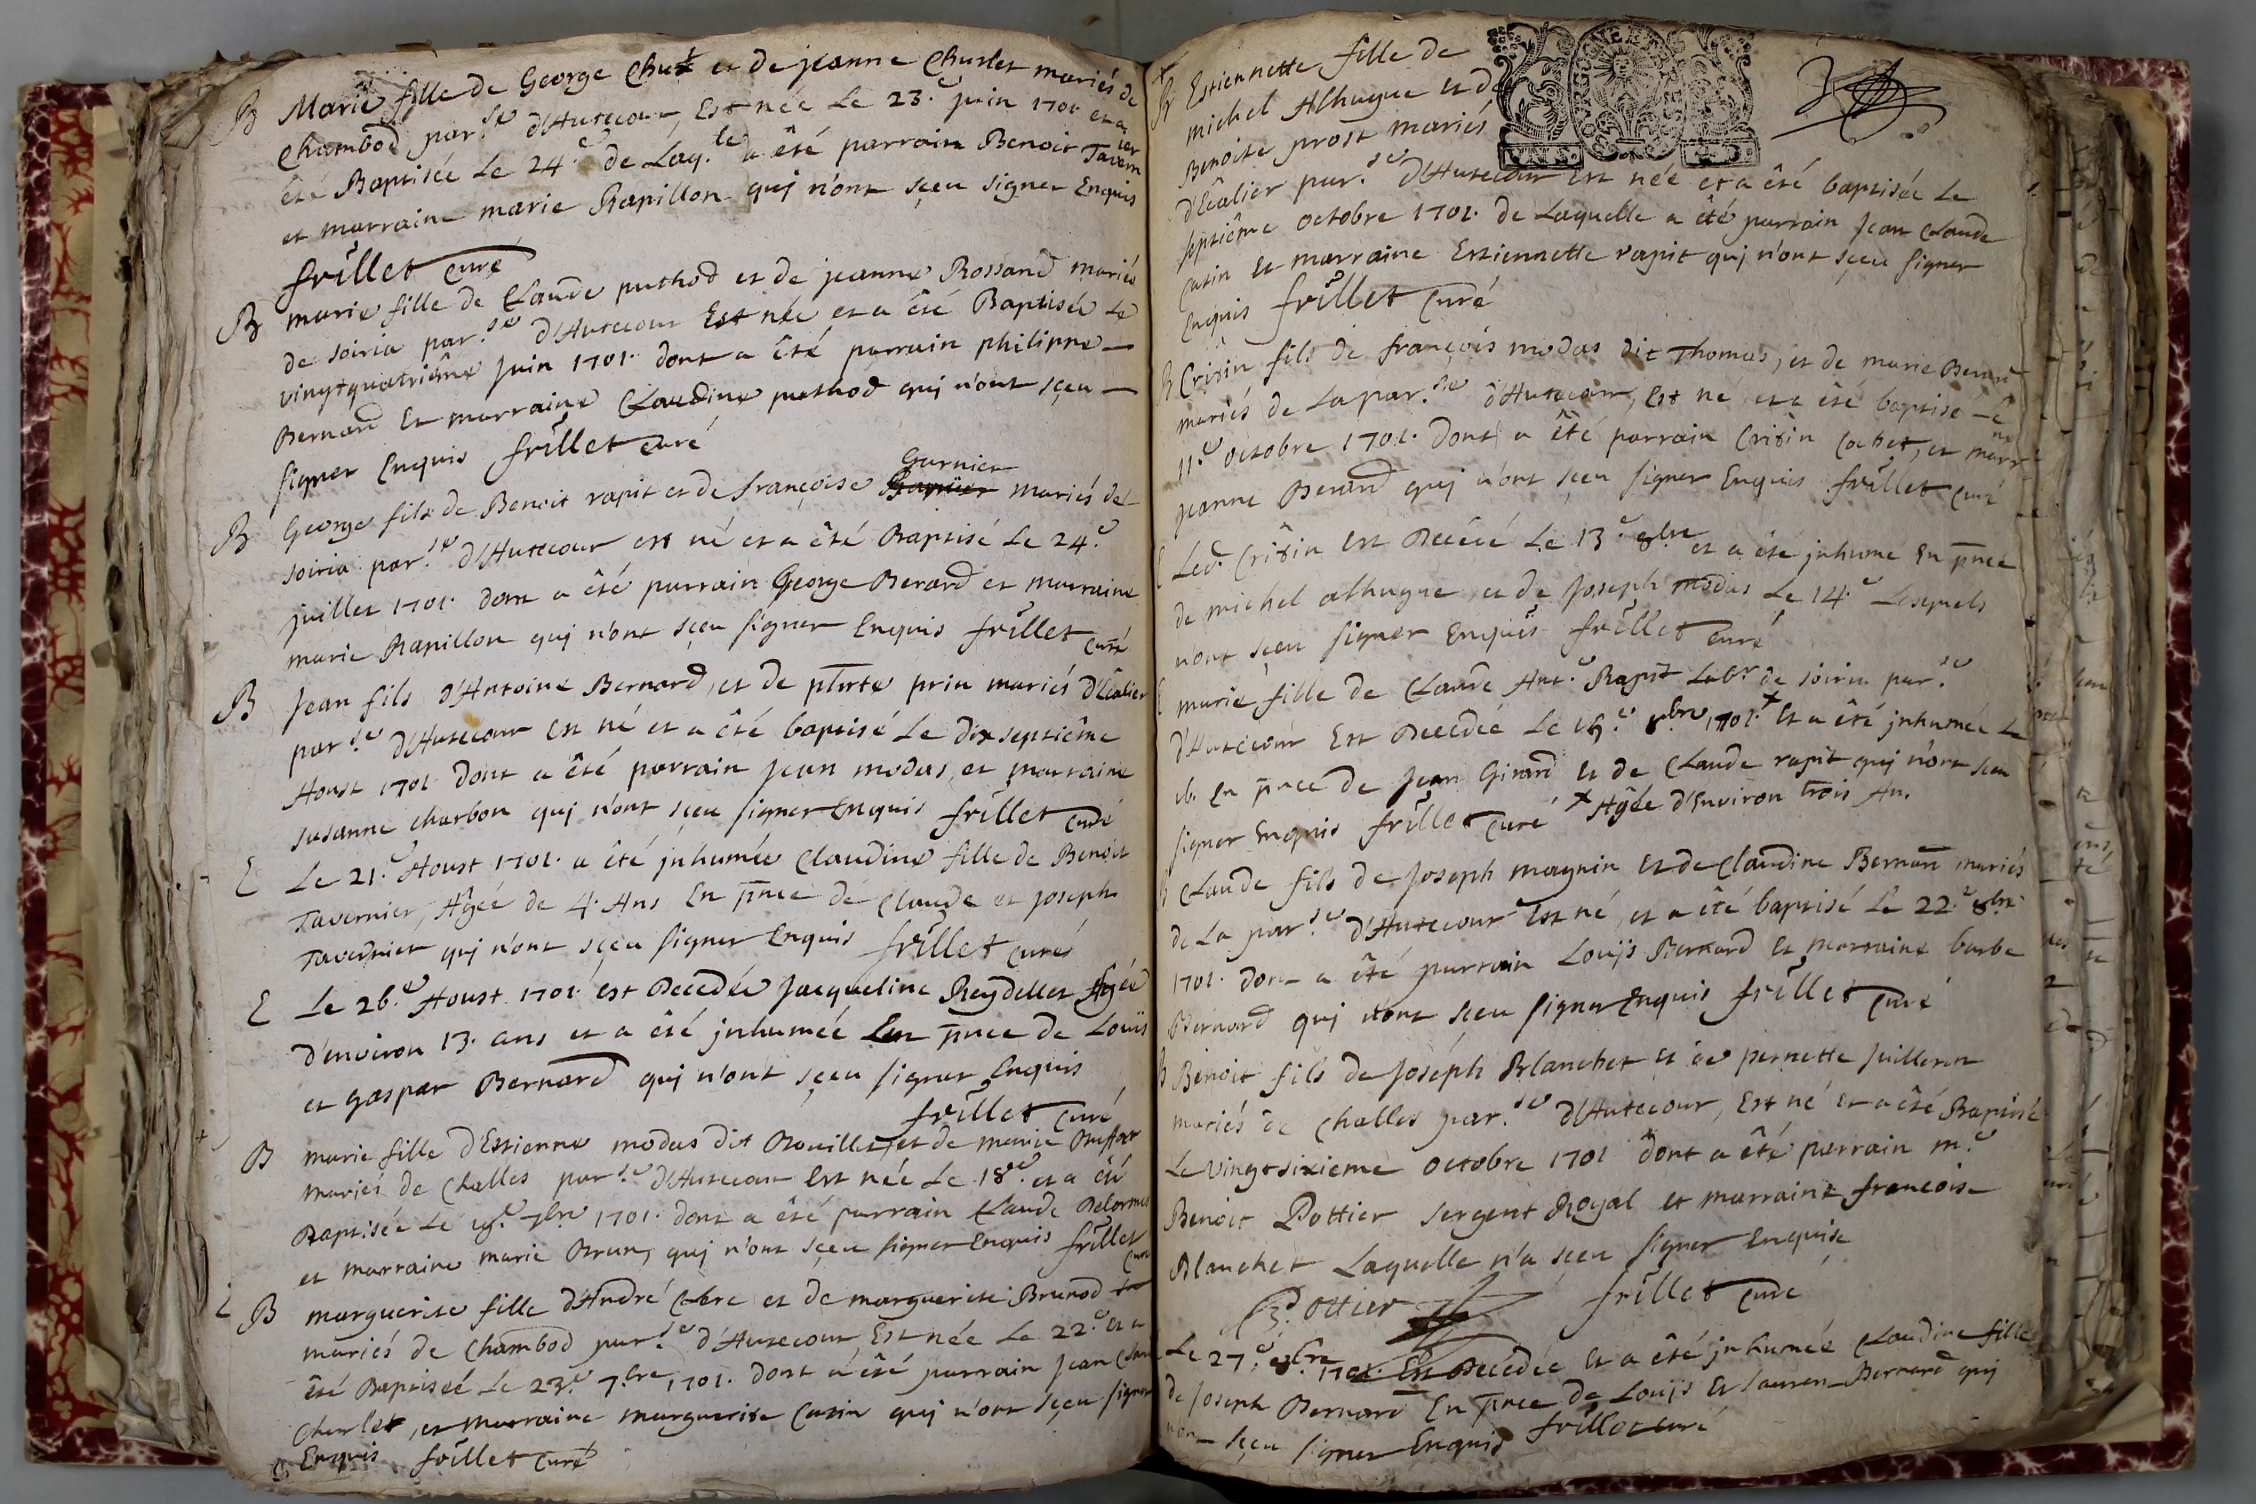 B Marie fille de George Chu et de jeanne Churlet mariés de
Chambod par.se d'Autecour, Est née Le 23.e juin 1701 et a
été Baptisée Le 24.e de Laq.le a été parrain Benoit Tavernier
et marraine marie Rapillon quj n'ont sçeu signer Enquis
frillet curé
B marie fille de Claude puthod et de jeanne Rossand mariés
de soiria par.se d'Autecour Est née et a été Baptisée Le
vingtquatriême Juin 1701. dont a êté parrain philippe
Bernard Et marraine Claudine puthod quj n'ont sçeu
signer Enquis frillet curé
B George fils de Benoit rapit et de françoise Garnier mariés de
soiria par.se d'Autecour est né et a été Baptisé Le 24.e
juillet 1701. dont a été parrain George Berard et marraine
marie Rapillon quj n'ont sçeu signer Enquis frillet curé
B Jean fils d'Antoine Bernard, et de prin mariés d'Ecâlier
par.se d'Autecour est né et a êté baptisé Le dix septiême
Aoust 1701 dont a êté parrain jean modas, et marraine
susanne charbon quj n'ont sçeu signer Enquis frillet curé
E Le 21.e Aoust 1701. a êté jnhumée Claudine fille de Benoit
Tavernier, Agée de 4. Ans En pñce de Claude et joseph
Tavernier quj n'ont sçeu signer Enquis frillet curé
E Le 26.e Aoust 1701 est Decedée Jacqueline Reydellet Agée
d'environ 13. ans et a êté jnhumée En pñce de Louis
et gaspar Bernard quj n'ont sçeu signer Enquis
frillet curé
B marie fille d'Estienne modas dit Rouillet, et de marie
mariés de Challes par.se d'Autecour est née Le 18.e et a êté
Baptisée Le 19.e 7bre 1701. dont a été parrain Claude Delormes
et marraine marie Brun, quj n'ont sçeu signer Enquis frillet
curé
B marguerite fille d'André et de marguerite Brunod
mariés de Chambod par.se d'Autecour, Est née Le 22.e et a
été Baptisée Le 23.e 7.bre 1701. dont a êté parrain jean Claude
Churlet, et marraine marguerite Catin quj n'ont sçeu signer
Enquis frillet curé
B Estiennette fille de
michel Alhugue et de
Benoite prost mariés
d'Ecâlier par.se d'Autecour est née et a êté baptisée Le
septiême octobre 1701. de Laquelle a êté parrain Jean Claude
Catin et marraine Estiennette rapit quj n'ont sçeu signer
Enquis frillet curé
B Crisin fils de françois modas dit Thomas, et de marie Berard
mariés de La par.se d'Autecour, Est né et a été baptisé Le
11.e octobre 1701. dont a êté parrain Crisin Cochet, et marr.ne
jeanne Berard quj n'ont sçeu signer Enquis frillet curé
E Led. Crisin Est Decédé Le 13.e 8bre et a été jnhumé En pñce
de michel alhugue et de Joseph modas Le 14.e Lesquels
nont sçeu signer Enquis frillet curé
E marie fille de Claude Ant.e Rapit Lab.r de soiria par.se
d'Autecour Est Decedée Le 15.e 8.bre 1701.+ Et a êté jnhumée Le
16. En pñce de Jean Girard et de Claude rapit quj n'ont sceu
signer Enquis frillet curé + Agée d'Environ trois An.
B Claude fils de Joseph magnin et de Claudine Bernard mariés
de La par.se d'Autecour Est né, et a êté baptisé Le 22.e 8bre
1701. dont a êté parrain Louijs Bernard et marraine barbe
Bernard quj n'ont sceu signer Enquis frillet curé
B Benoit fils de Joseph Blanchet et de pernette Juilleron
mariés de Challes par.se d'Autecour, Est né et a êté Baptisé
Le vingtsixieme octobre 1701 dont a êté parrain m.e
Benoit Pottier sergent Royal et marraine francoise
Blanchet Laquelle n'a sceu signer Enquise
B. Pottier frillet curé
Le 27.e 8bre 1701. Est Decedée et a êté jnhumée Claudine fille
de Joseph Bernard En pñce de Louijs et Lauren Bernard quj
n'on sçeu signer Enquis frillet curé